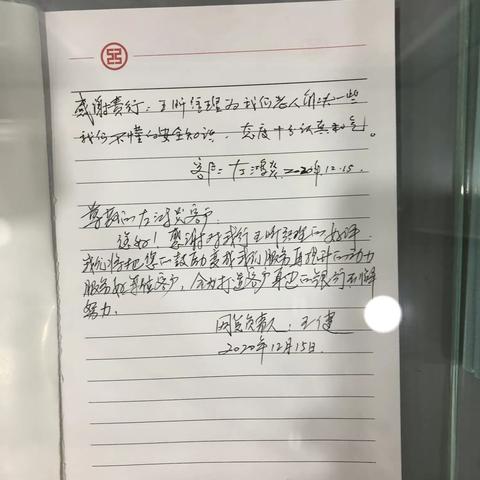 感谢贵行：王昕经理为我们老人解决一些
我们不懂的安全知识，态度十分认真和气。
客户：左鸿 2020年.12.15.
尊敬的左鸿客户
您好！感谢对我行王昕经理的好评
我们将把您的鼓励变成我们服务再提升的动力
服务好每位客户，全力打造客户身边的银行不懈
努力.
网点负责人：王健
2020年12月15日.